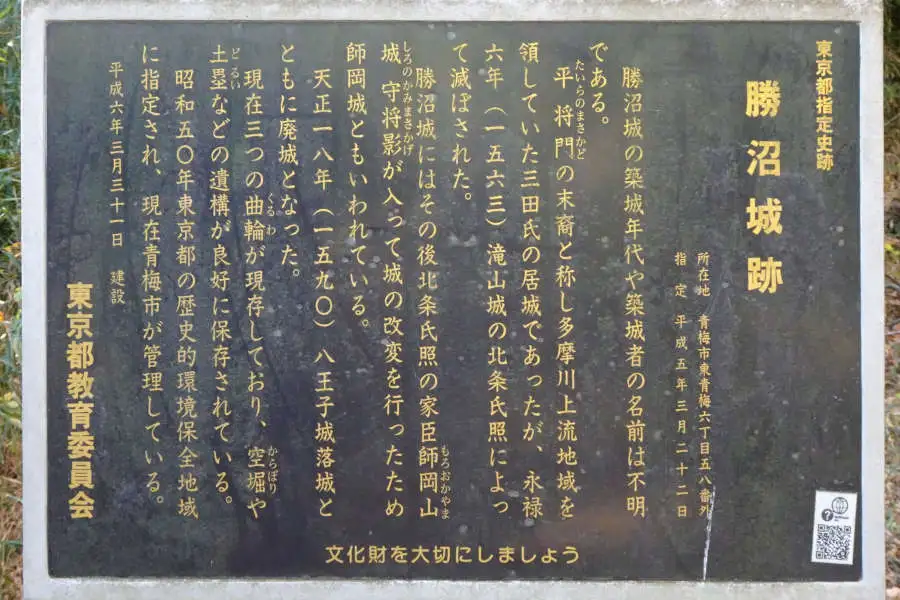 東京都指定史跡
勝沼城跡
所在地 青梅市東青梅六丁目五八番外
指定 平成五年三月二十二日
勝沼城の築城年代や築城者の名前は不明
である。
たいらのまさかど
平 将門の末裔と称し多摩川上流地域を
領していた三田氏の居城であったが、永禄
六年（一五六三）滝山城の北条氏照によっ
て滅ぼされた。
もろおかやま
勝沼城にはその後北条氏照の家臣師岡山
しろのかみまさかげ
城 守将影が入って城の改変を行ったため
師岡城ともいわれている。
天正一八年（一五九〇）八王子城落城と
ともに廃城となった。
くるわ からぼり
現在三つの曲輪が現存しており、空堀や
どるい
土塁などの遺構が良好に保存されている。
昭和五〇年東京都の歴史的環境保全地域
に指定され、現在青梅市が管理している。
平成六年三月三十一日 建設
東京都教育委員会
文化財を大切にしましょう